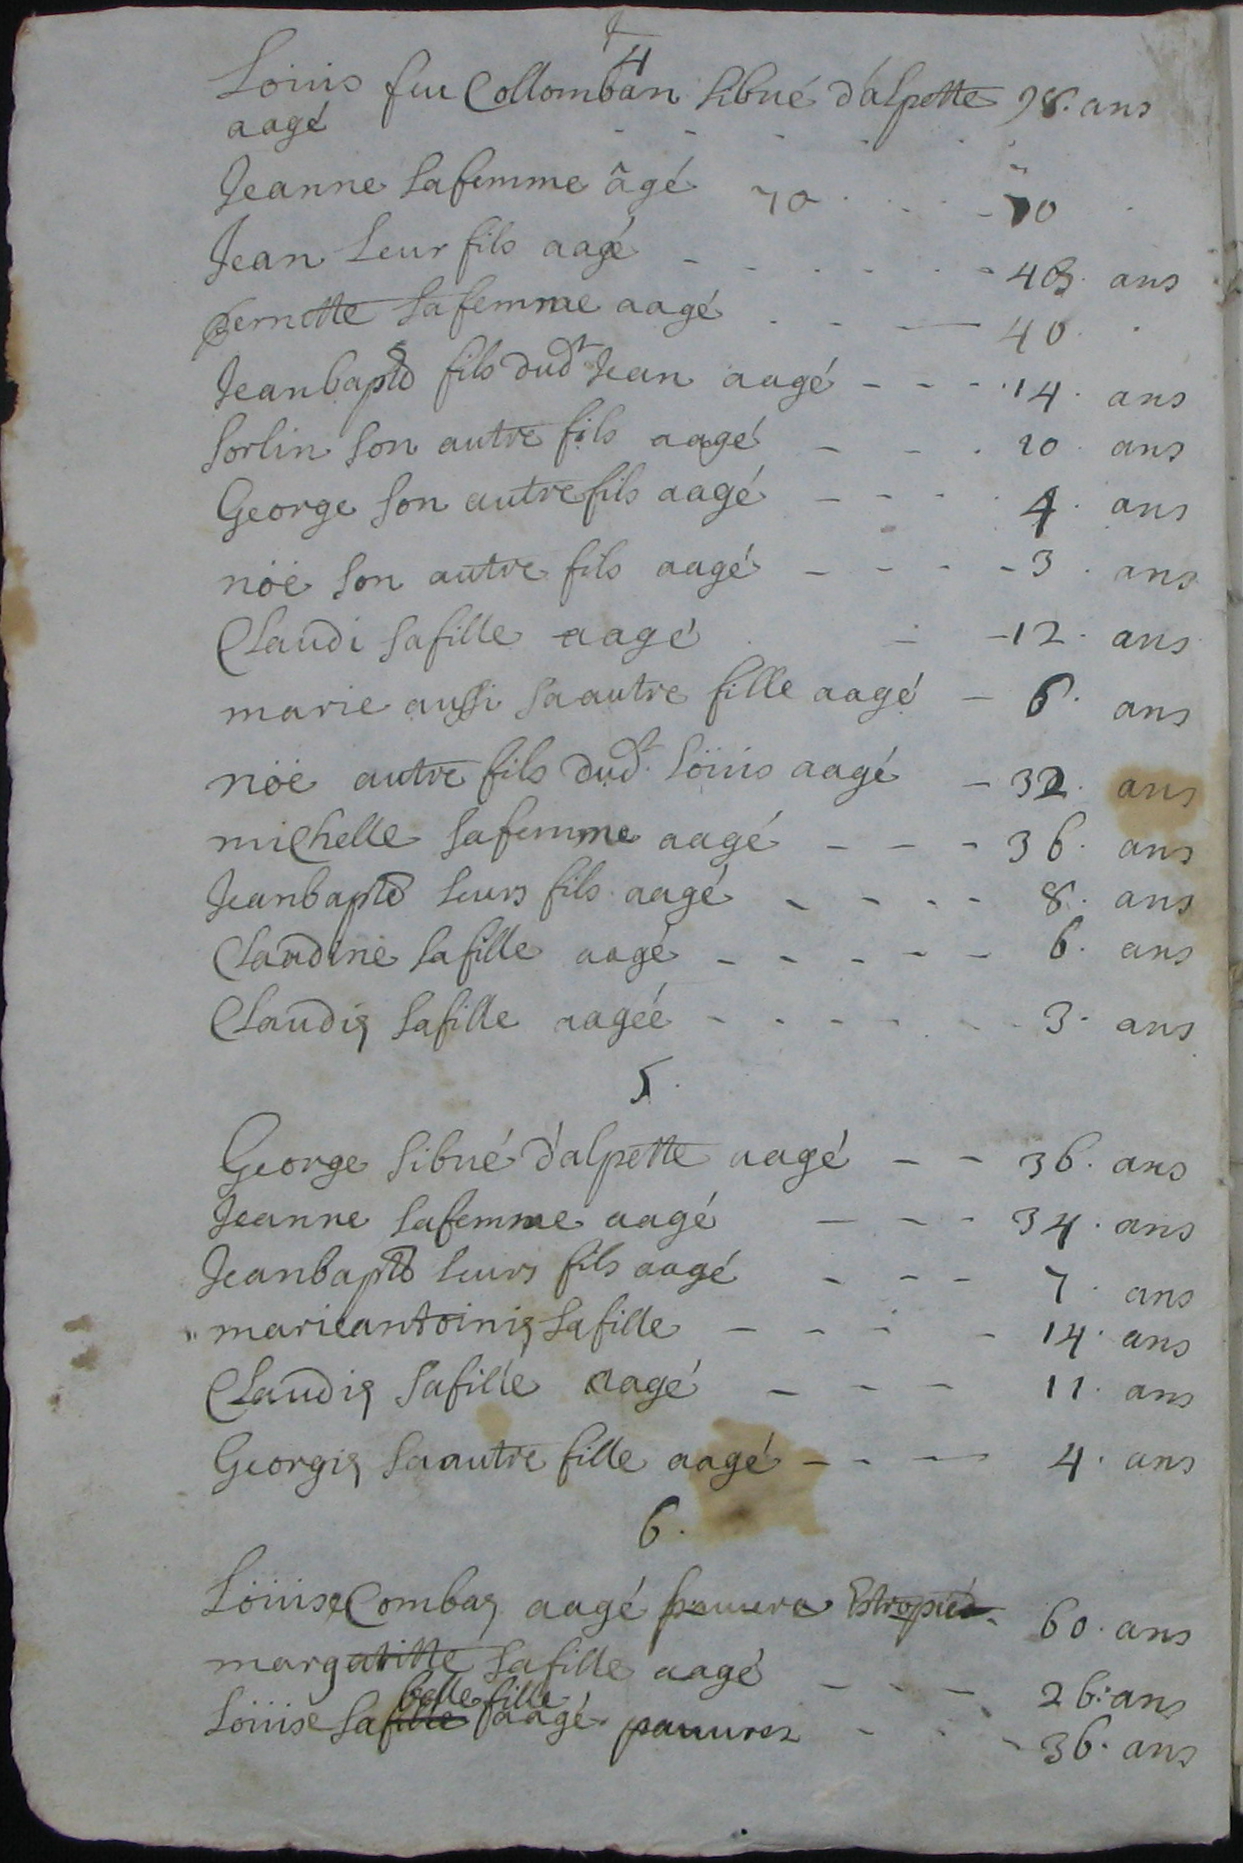 4
Loüis feu Collomban Sibué d'alpette 78. ans
aagé
Jeanne sa femme âgé 70 70
Jean leur fils aagé 48. ans
pernette sa femme aagé 40.
Jeanbapte fils dudt Jean aagé 14. ans
Sorlin son autre fils aagé 10. ans
George son autre fils aagé 4. ans
noë son autre fils aagé 3. ans
Claudi sa fille aagé 12. ans
marie aussi sa autre fille aagé 6. ans
noë autre fils dudt Loüis aagé 32. ans
michelle sa femme aagé 36. ans
Jeanbapte leurs fils aagé 8. ans
Claudine sa fille aagé 6. ans
Claudiaz sa fille aagéé 3. ans
5.
George Sibué d'alpette aagé 36. ans
Jeanne sa femme aagé 34. ans
Jeanbapte leurs fils aagé 7. ans
marieantoiniaz sa fille 14. ans
Claudiaz sa fille aagé 11. ans
Georgiaz sa autre fille aagé 4. ans
6.
Loüise Combaz aagé pauure Estropiéé 60. ans
margueritte sa fille aagé 26. ans
belle fille
Loüise sa fille aagé pauures 36. ans